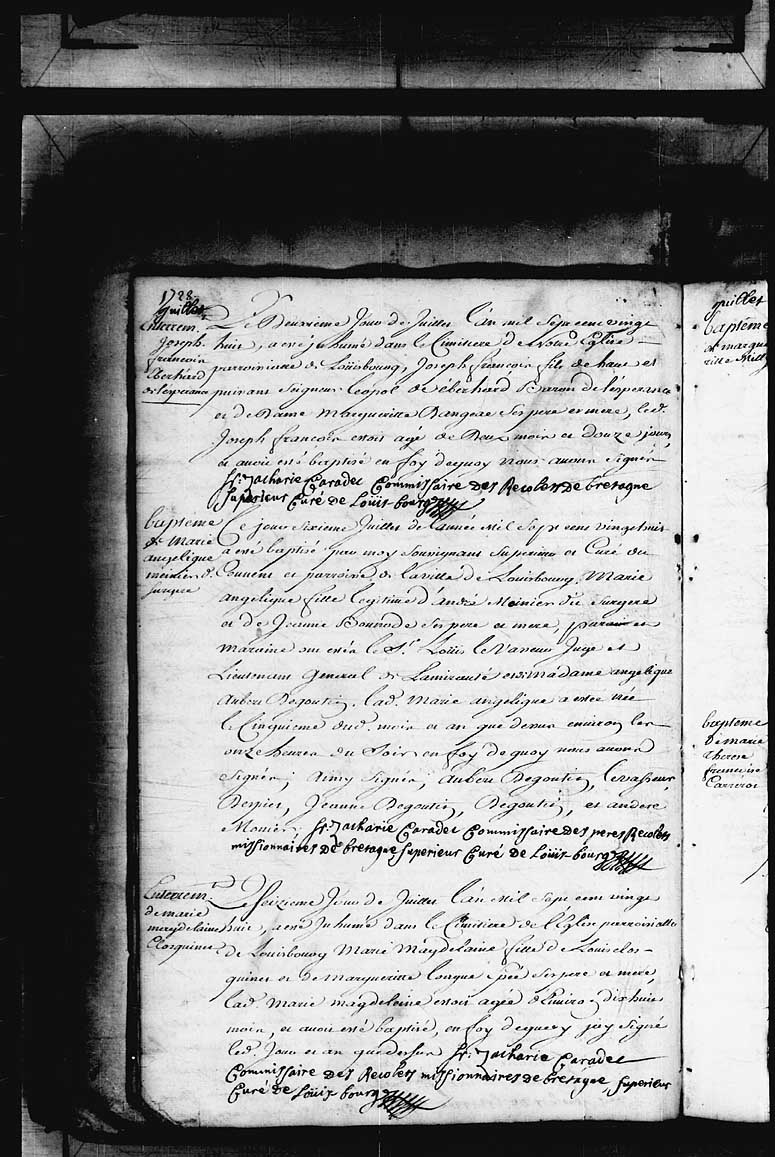 1728
Juillet
Enterrem.t
Joseph
francois
Eberhard
de lesperance
Le Deuxieme Jour de Juillet L'an mil sept cent vingt
huit, a esté inhumé dans le Cimitiere de Notre Eglise
parroissiale de Loüisbourg, Joseph francois fils de haut et
puissant Seigneur Leopol de Eberhard Baron de l'esperance
et de Dame Margueritte Dangeac ses pere et mere, led.
Joseph francois estoit agé de Deux mois et douze jours
et avoit esté baptisé en foy dequoy Nous avons Signés
fr. Zacharie Caradec Commissaire des Recolets de bretagne
Superieur Curé de Loüis-bourg
bapteme
de Marie
angelique
meinier d.
surgere
Ce jour Sixieme Juillet de l'année Mil Sept cent vingt huit
a esté baptisé par moy Soussignant Superieur et Curé du
Couvent et parroisse de la ville de Louisbourg, Marie
angelique fille legitime d'André Meinier dit Surgere
et de Jeanne ses pere et mere, parain et
maraine ont estés le S.r Loüis le Vasseur Juge et
Lieutenant General de Lamirauté et Madame angelique
Aubert Degoutin, lad. Marie angelique a estée née
le Cinquieme dud. mois et an que dessus environ les
onze heures du Soir en foy de quoy nous avons
Signés, Ainsy Signés, Aubert Degoutin, levasseur,
Despiet, Jeanne Degoutin, Degoutin, et andere
Monier, fr. Zacharie Caradec Commissaire des peres Recolets
missionnaires de bretagne, Superieur Curé de Loüis-bourg
Enterrem.t
de marie
magdelaine
Closquinet
Le Seizieme Jour de Juillet L'an Mil Sept cent vingt
huit, a esté Inhumé dans le Cimitiere de l'Eglise parroissialle
de Louisbourg Marie Magdelaine fille de Louis clos-
quinet et de Margueritte Longue epée ses pere et mere,
lad. Marie magdelaine estoit agée d'Environ dix huit
mois, et avoit esté baptisé, en foy dequoy jay Signé
led. Jour et an que dessus fr. Zacharie Caradec
Commissaire des Recolets missionnaires de bretagne, Superieur
Curé de Loüis bourg
juillet
bapteme
de margue
ritte
bapteme
de marie
therese
francoise
Carrerot